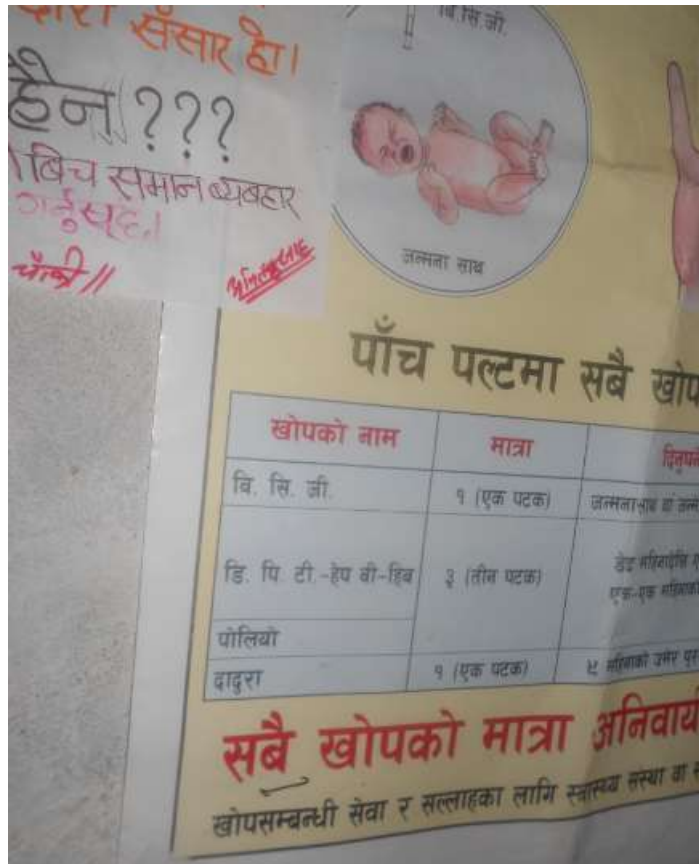 संसार हो।
हैन???
बिच समान ब्यबहार
गर्नुस्
बि.सि.जी.
जन्मना साथ
पाँच पल्टमा सबै खोप
खोपको नाम मात्रा
वि. सि. जी. १ (एक पटक) जन्मना साथ वा
डि. पि. टी.-हेप बी-हिब ३ (तीन पटक) डेढ महिनादेखि
एक-एक महिनाको
पोलियो
दादुरा १ (एक पटक) ९ महिनाको उमेर
सबै खोपको मात्रा अनिवार्य
खोपसम्बन्धी सेवा र सल्लाहका लागि स्वास्थ्य संस्था वा